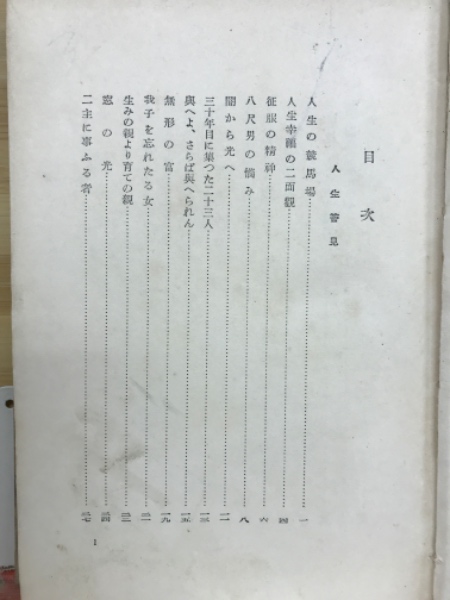 目次
人生
人生の競馬場 一
人生幸福の二面観 四
征服の精神 六
八尺男の悩み 八
闇から光へ 一一
三十年目に集つた二十三人 一三
與へよ、さらば與へられん 一五
無形の富 一九
我子を忘れたる女
生みの親より育ての親
窓の光
二主に事ふる者
1